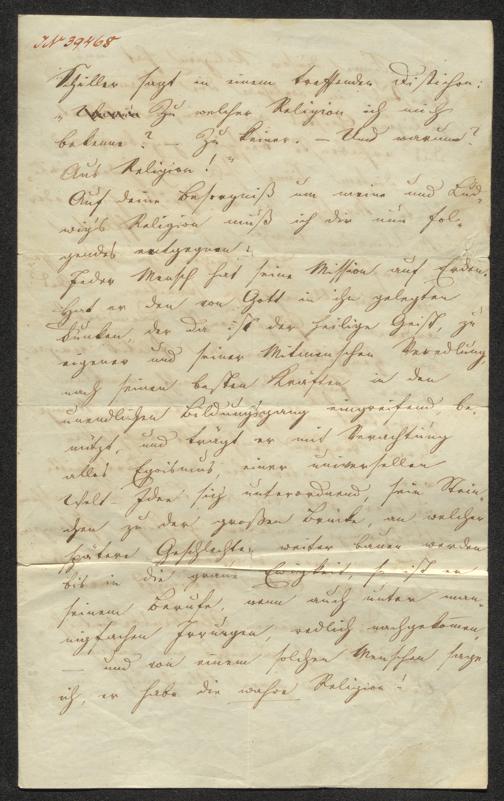 IN 39468
Schiller sagt in einem treffenden Distichon:
" Zu welcher Religion ich mich
bekenne? – Zu keiner. – Und warum?
Aus Religion! "
Auf deine Besorgniß um meine und Lud-
wig's Religion muß ich dir nun fol-
gendes entgegnen:
Jeder Mensch hat seine Mission auf Erden.
Hat er den von Gott in ihn gelegten
Funken, der da ist der heilige Geist, zu
eigener und seiner Mitmenschen Veredlung,
nach seinen besten Kräften in den
unendlichen Bildungsgang eingreifend, be-
nützt, und trägt er mit Verachtung
alles Egoismus einer universellen
Welt-Idee sich unterordnend, sein Stein-
chen zu der großen Brücke, an welcher
spätere Geschlechter weiter bauen werden
bis in die graue Ewigkeit, so ist er
seinem Berufe, wenn auch unter man-
nigfachen Irrungen, redlich nachgekommen,
– und von einem solchen Menschen sage
ich, er habe die wahre Religion!